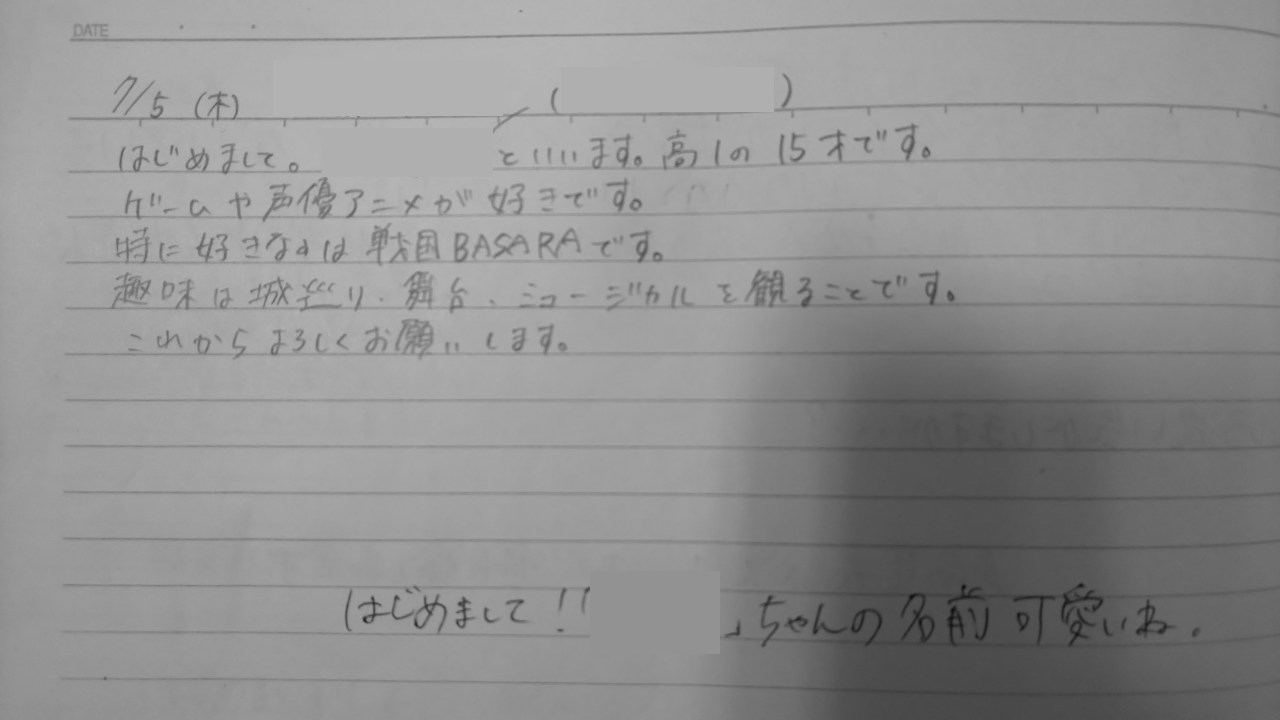 DATE
7/5 (木) ( )
はじめまして。 といいます。高1の15才です。
ゲームや声優アニメが好きです。
特に好きなのは戦国BASARAです。
趣味は城巡り、舞台、ミュージカルを観ることです。
これからよろしくお願いします。
はじめまして!!「 」ちゃんの名前可愛いね。